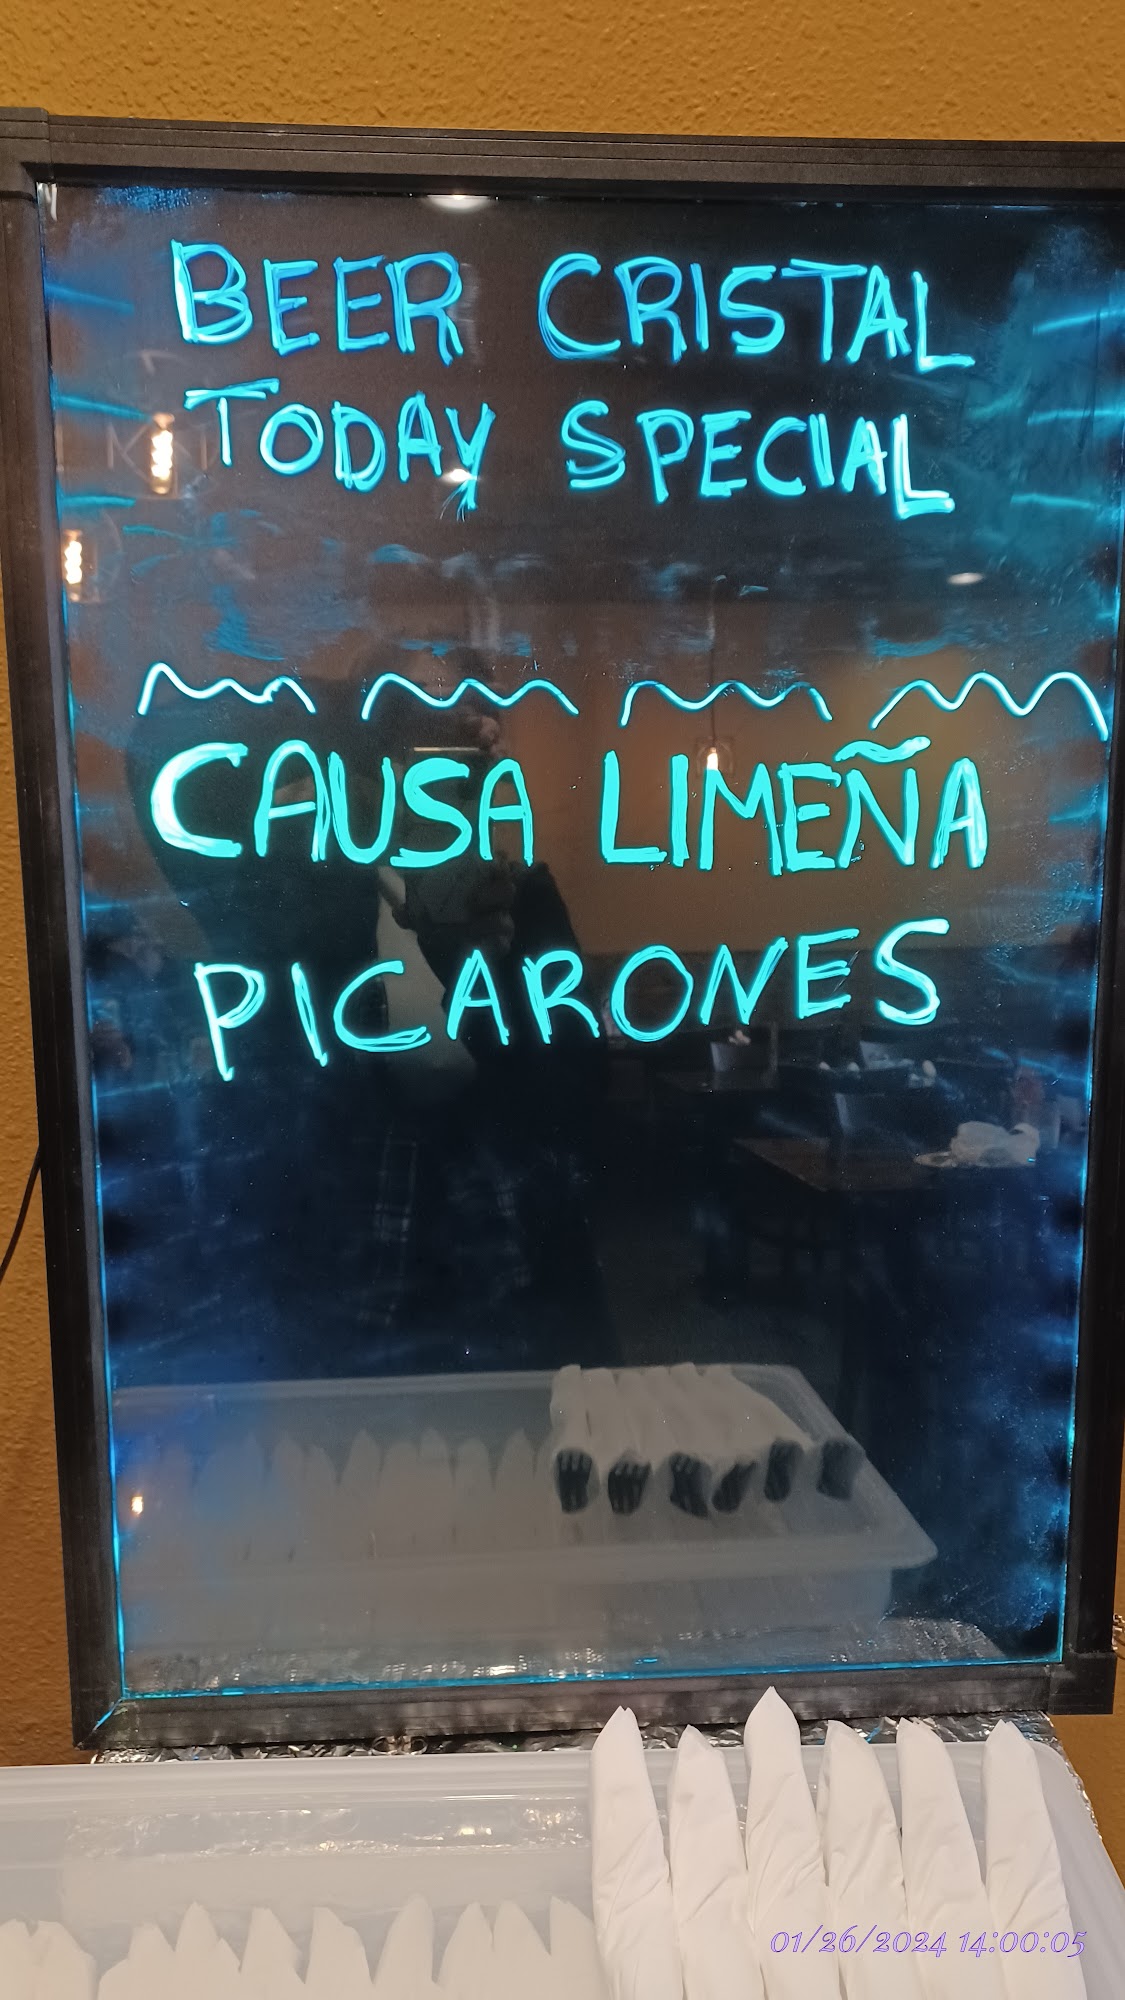 BEER CRISTAL
TODAY SPECIAL
CAUSA LIMEÑA
PICARONES
01/26/2024 14:00:05